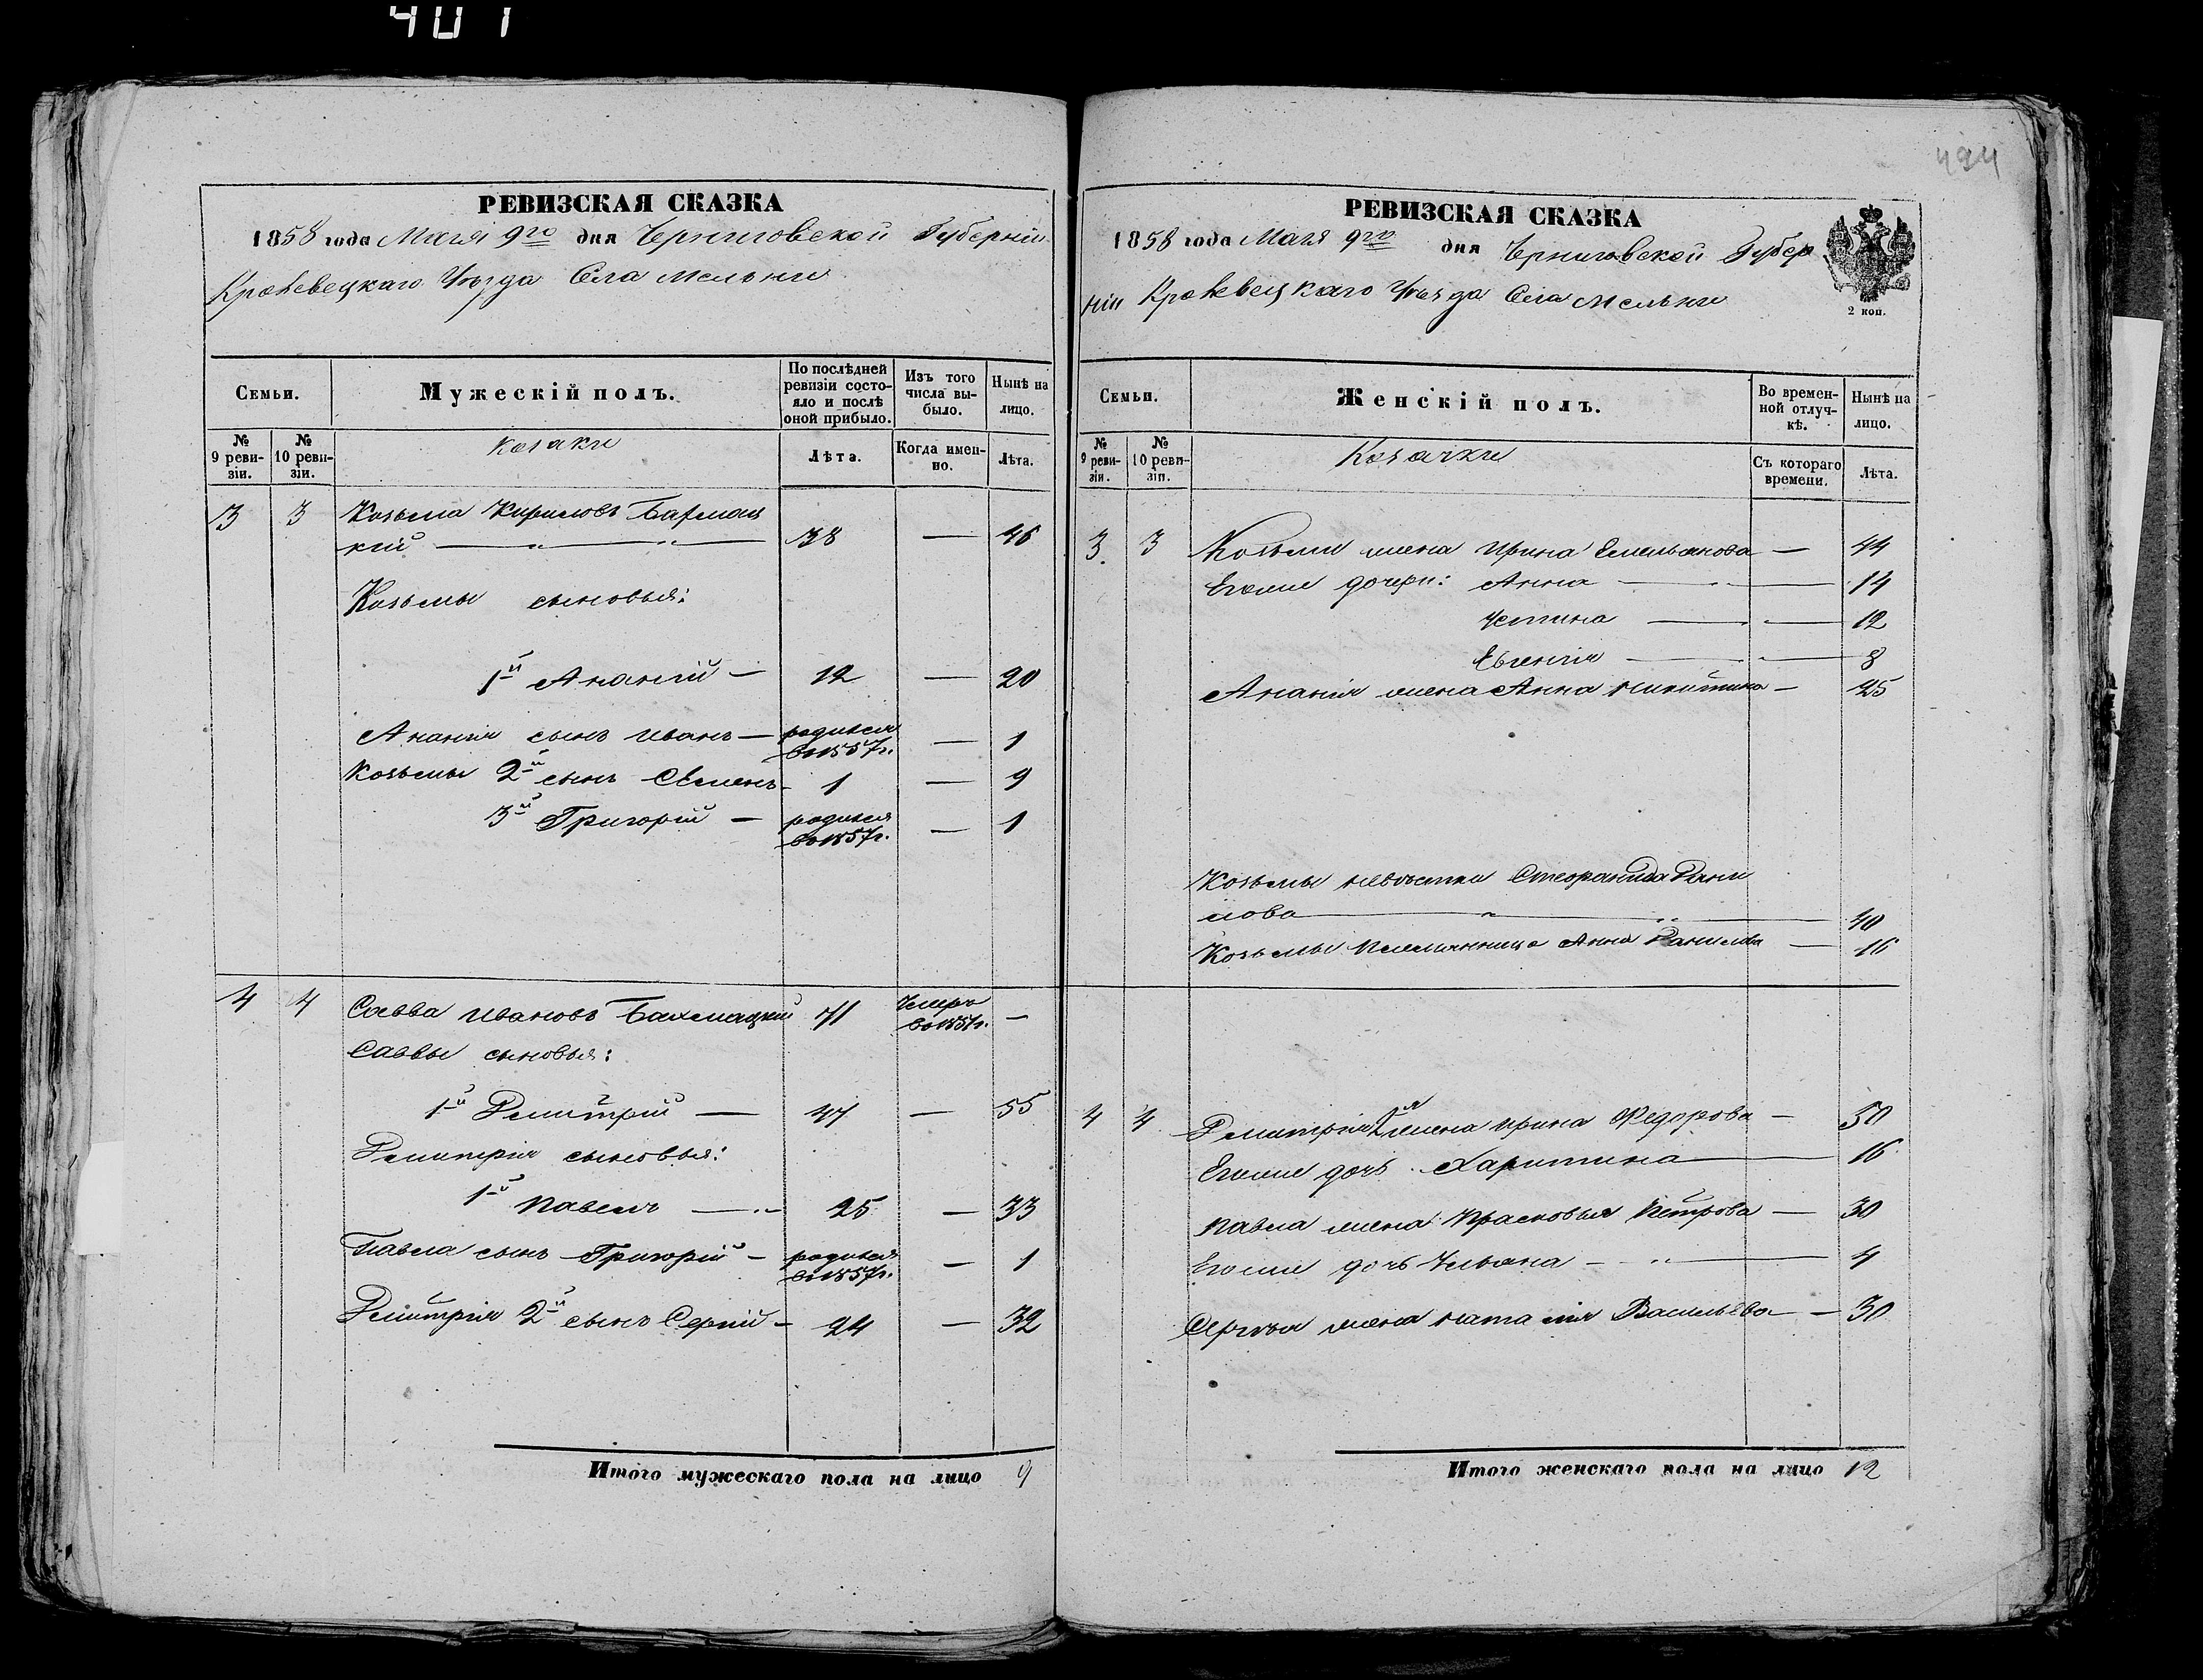 401
494
РЕВИЗСКАЯ СКАЗКА
1858 года Маія 9го дня Черниговской Губерніи
Кролевецкаго Уѣзда Села Мельни
Семьи.
Мужескій полъ.
По послѣдней ревизіи состояло и послѣ оной прибыло.
Изъ того числа выбыло.
Нынѣ на лицо.
№ 9 ревизіи.
№ 10 ревизіи.
Козаки
Лѣта.
Когда именно.
Лѣта.
3 3 Козьма Кириловъ Бахмац
кій — „ — „ — 38 — 46
Козьмы сыновья:
1й Ананій — 12 — 20
Ананія сынъ Иванъ — родился в 1857г. — 1
Козьмы 2й сынъ Семенъ — 1 — 9
3й Григорій — родился в 1857г. — 1
4 4 Савва Ивановъ Бахмацкій 71 Умеръ в 1851г. —
Саввы сыновья:
1й Дмитрій — 47 — 55
Дмитрія сыновья:
1й Павелъ — 25 — 33
Павла сынъ Григорій — родился в 1857г. — 1
Дмитрія 2й сынъ Сергій — 24 — 32
Итого мужескаго пола на лицо 9
РЕВИЗСКАЯ СКАЗКА
1858 года Маія 9го дня Черниговской Губер
ніи Кролевецкаго Уѣзда Села Мельни
2 коп.
Семьи.
Женскій полъ.
Во временной отлучкѣ.
Нынѣ на лицо.
№ 9 ревизіи.
№ 10 ревизіи.
Козачки
Съ котораго времени.
Лѣта.
3. 3 Козьмы жена Ирина Емельянова — 44
Егоже дочери: Анна — 14
Устина — 12
Евгенія — 8
Ананія жена Анна Никитина — 25
Козьмы невѣстка Стефанида Дани
лова — „ — „ — 40
Козьмы племянница Анна Данилова — 16
4 4 Дмитрія 2я жена Ирина Федорова — 50
Егоже дочь Харитина — 16
Павла жена Прасковья Петрова — 30
Егоже дочь Ульяна — „ — 4
Сергѣя жена Наталія Васильева — 30
Итого женскаго пола на лицо 12